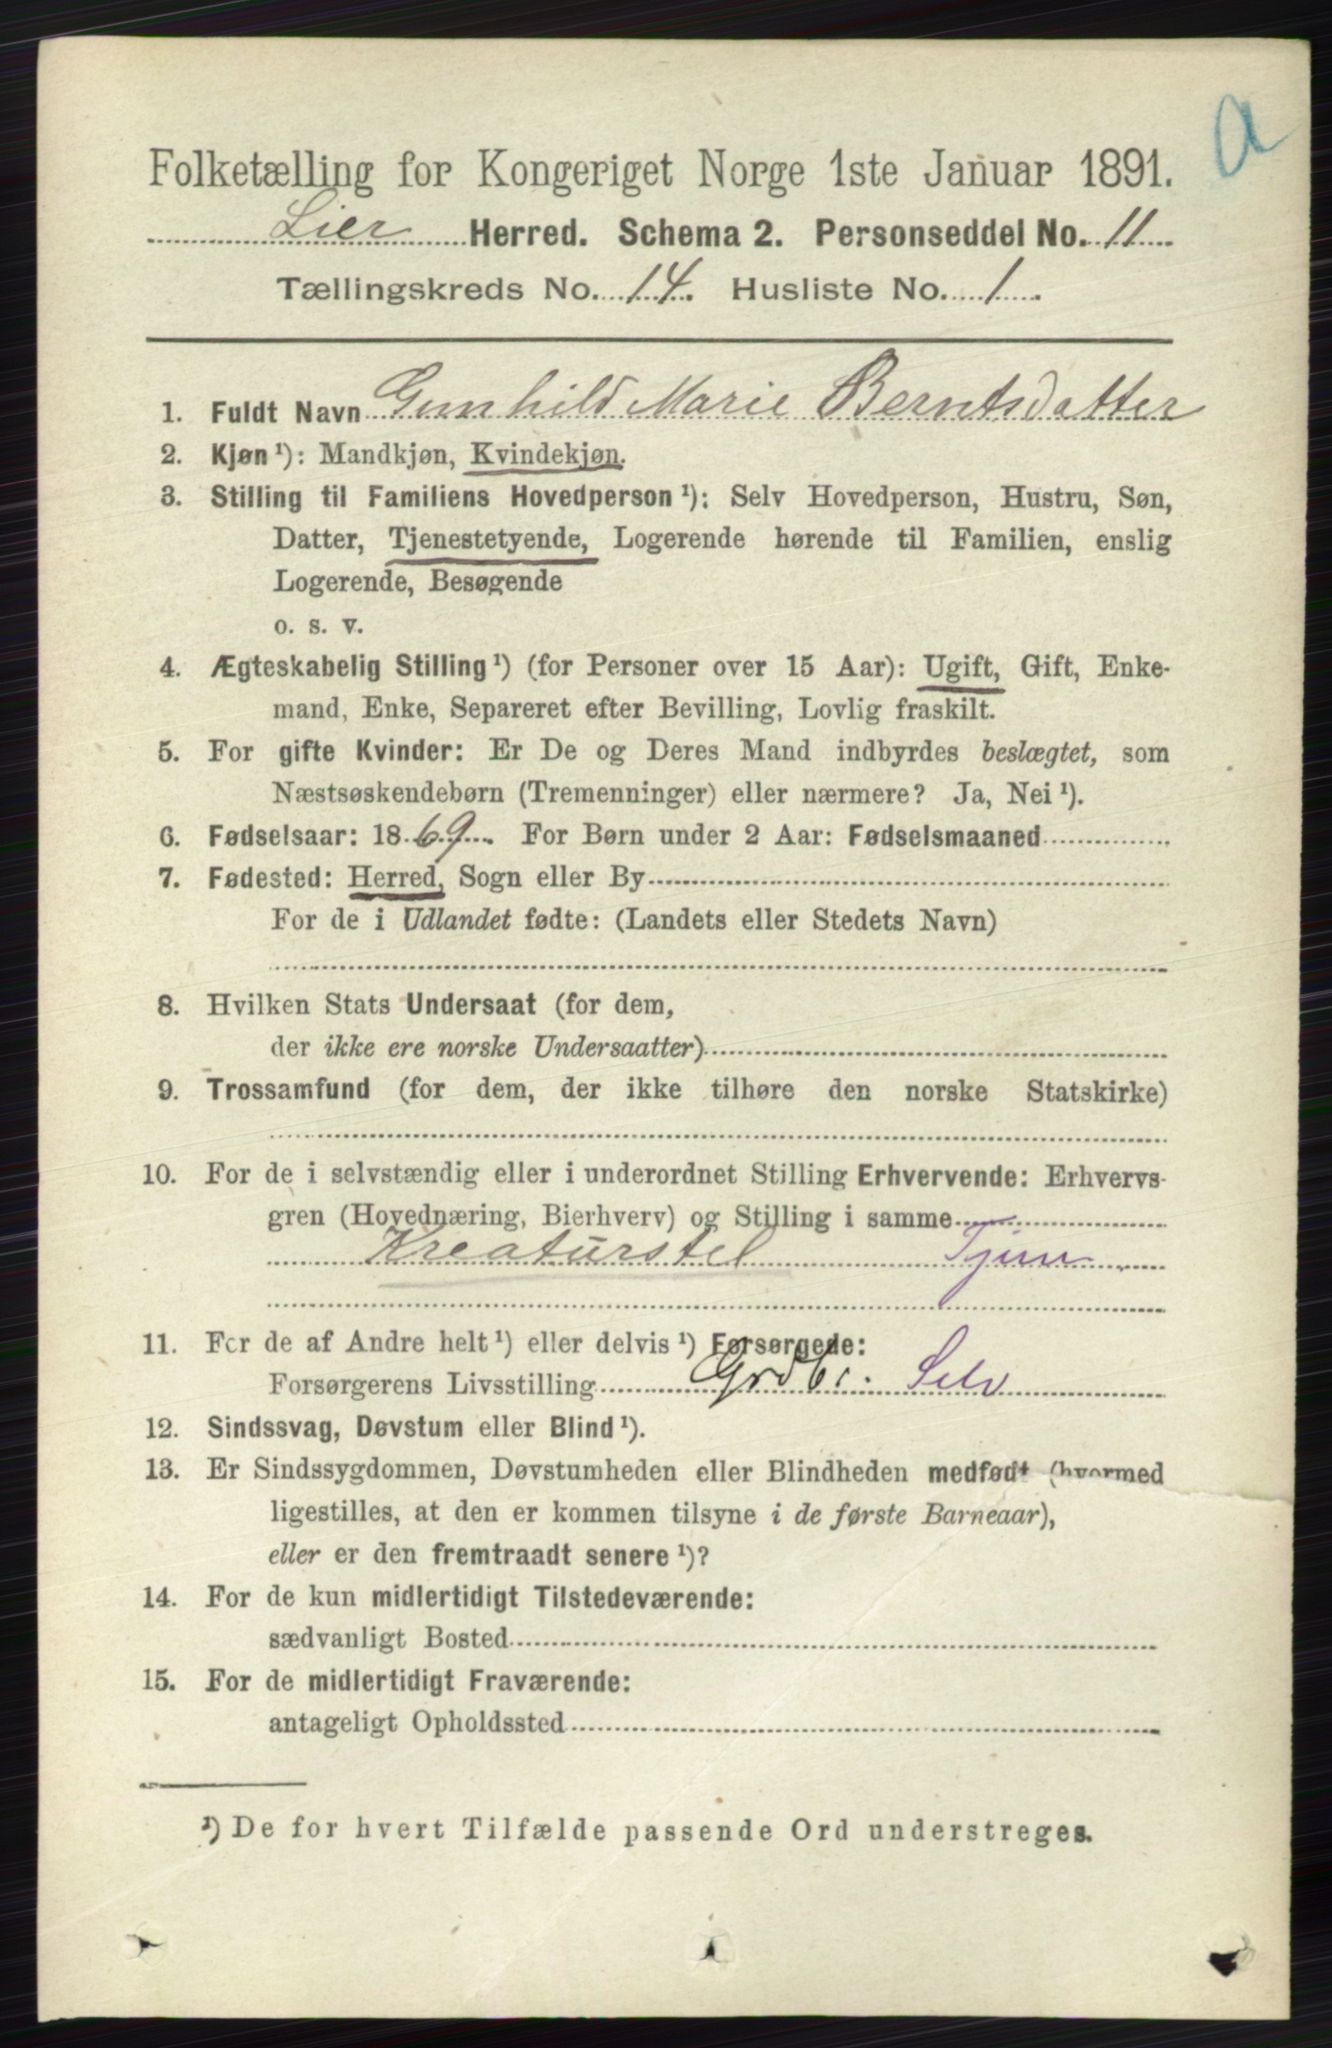 a
Folketælling for Kongeriget Norge 1ste Januar 1891.
Lier Herred. Schema 2. Personseddel No. 11
Tællingskreds No. 14. Husliste No. 1
1. Fuldt Navn Gunhild Marie Berntsdatter
2. Kjøn ¹): Mandkjøn, Kvindekjøn.
3. Stilling til Familiens Hovedperson ¹): Selv Hovedperson, Hustru, Søn,
Datter, Tjenestetyende, Logerende hørende til Familien, enslig
Logerende, Besøgende
o. s. v.
4. Ægteskabelig Stilling ¹) (for Personer over 15 Aar): Ugift, Gift, Enke-
mand, Enke, Separeret efter Bevilling, Lovlig fraskilt.
5. For gifte Kvinder: Er De og Deres Mand indbyrdes beslægtet, som
Næstsøskendebørn (Tremenninger) eller nærmere? Ja, Nei ¹).
6. Fødselsaar: 1869. For Børn under 2 Aar: Fødselsmaaned
7. Fødested: Herred, Sogn eller By
For de i Udlandet fødte: (Landets eller Stedets Navn)
8. Hvilken Stats Undersaat (for dem,
der ikke ere norske Undersaatter)
9. Trossamfund (for dem, der ikke tilhøre den norske Statskirke)
10. For de i selvstændig eller i underordnet Stilling Erhvervende: Erhvervs-
gren (Hovednæring, Bierhverv) og Stilling i samme
Kreaturstel
11. For de af Andre helt ¹) eller delvis ¹) Forsørgede:
Forsørgerens Livsstilling Grdbr. Selv
12. Sindssvag, Døvstum eller Blind ¹).
13. Er Sindssygdommen, Døvstumheden eller Blindheden medfødt (hvormed
ligestilles, at den er kommen tilsyne i de første Barneaar),
eller er den fremtraadt senere ¹)?
14. For de kun midlertidigt Tilstedeværende:
sædvanligt Bosted
15. For de midlertidigt Fraværende:
antageligt Opholdssted
¹) De for hvert Tilfælde passende Ord understreges.